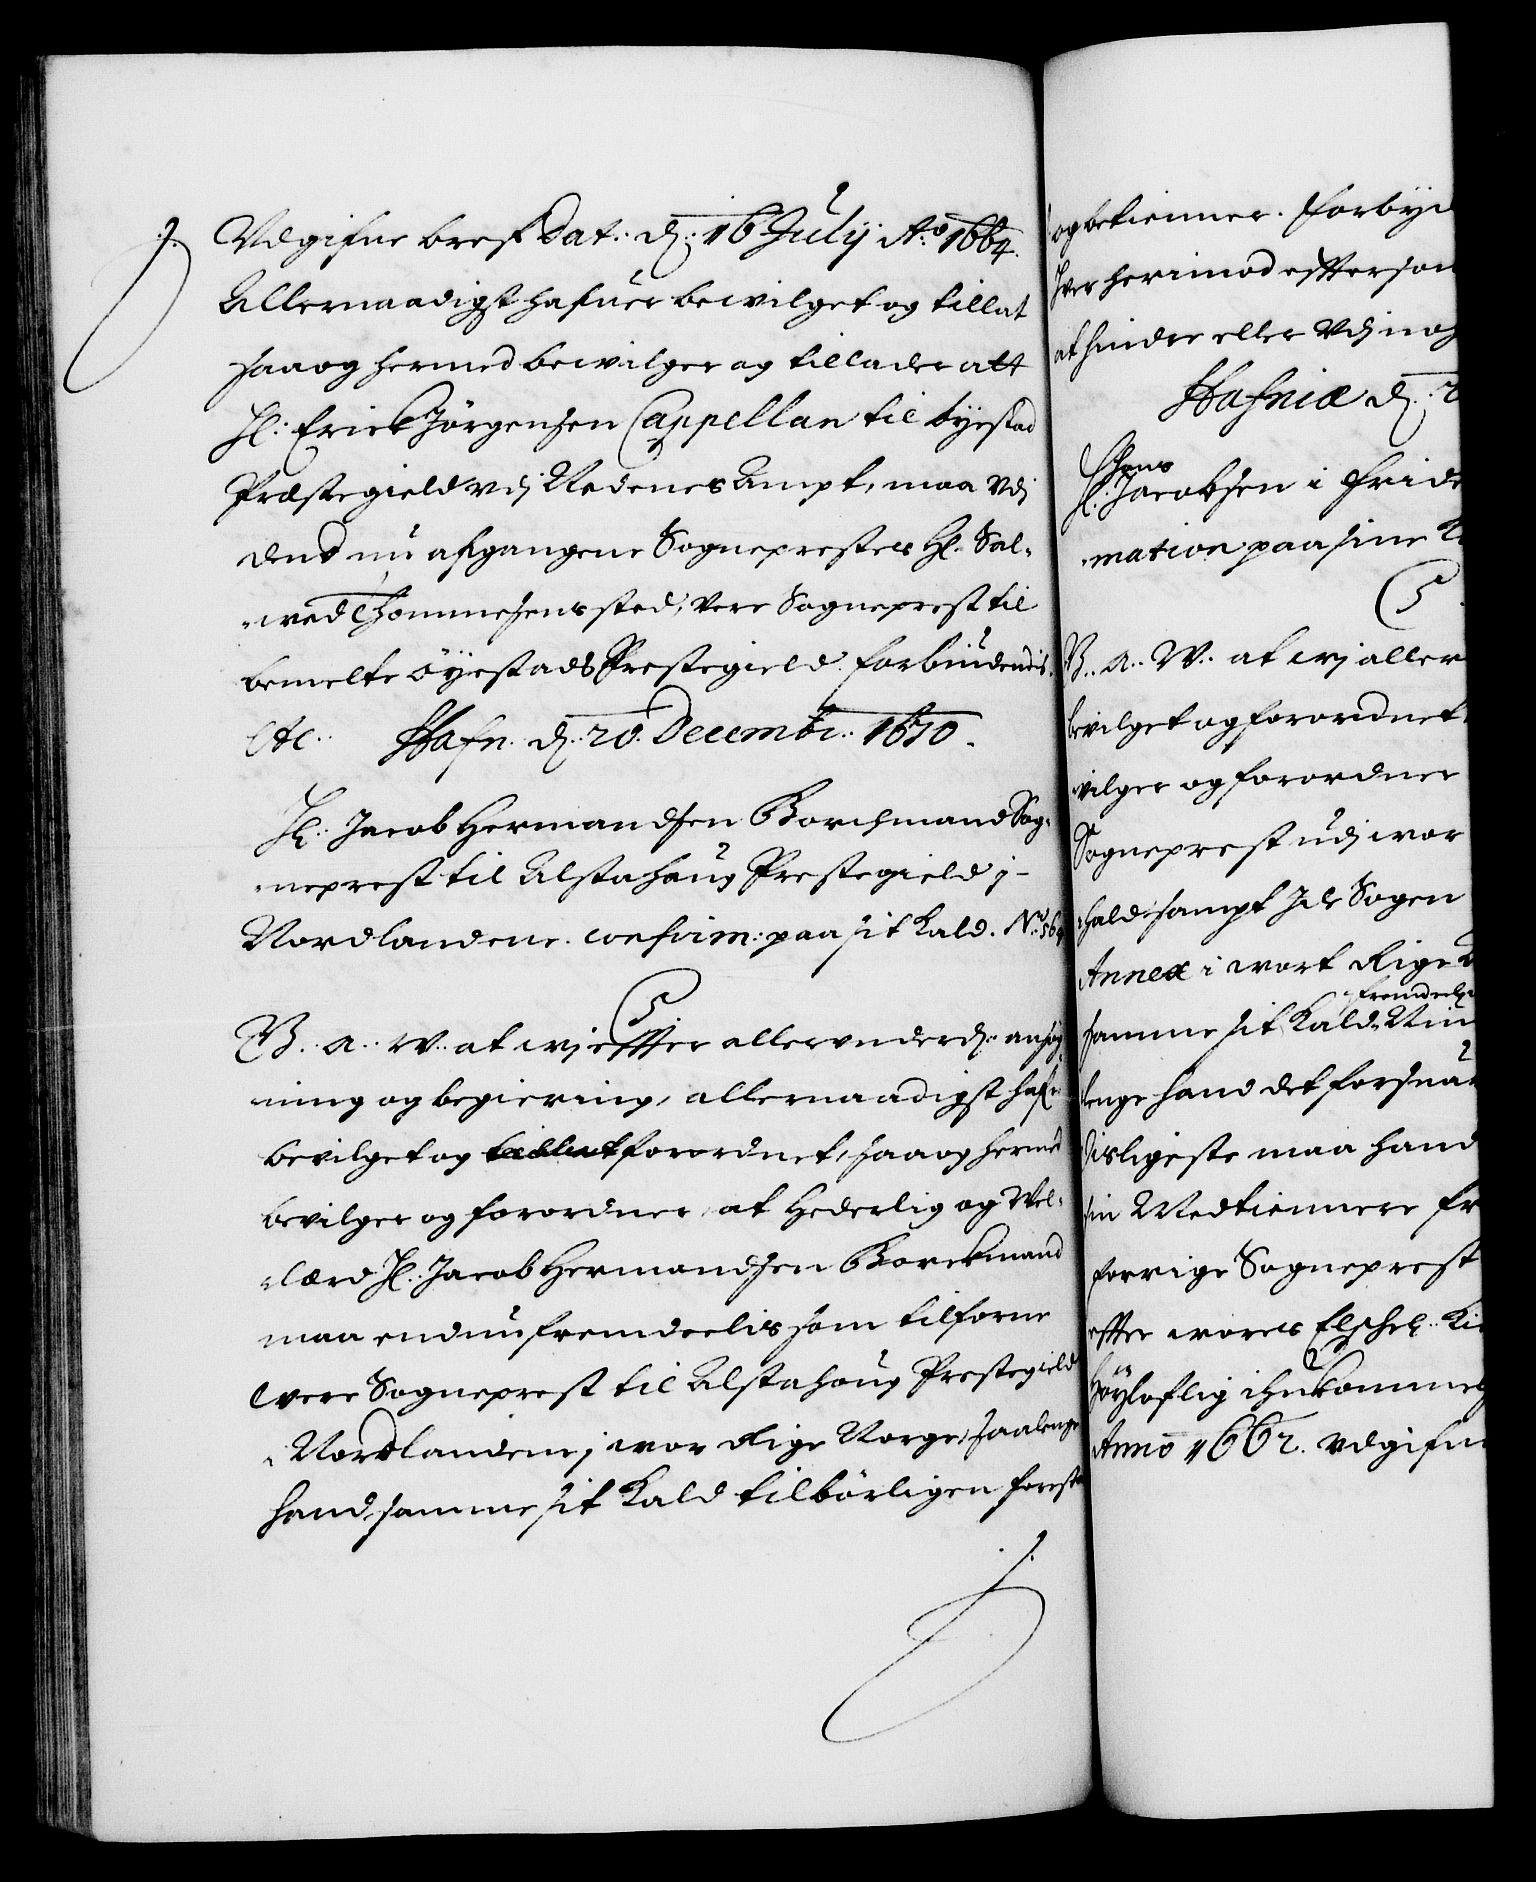 Udgifne bref Dat: d: 16 July Ao 1664.
Allernaadigst hafuer bewilget og tillat
saa og hermed bewilger og tillader att
Hl: Erick Jørgensen Cappellan til Øyestad
Præstegield vdj Nedenes Ampt, maa vdj
dend nu afgangene Sogneprestes Hl. Sal-
-wed Thommesens sted, vere Sogneprest til
bemelte Øyestads Prestegield. forbiudendis.
etc: Hafn. d: 20. Decembr: 1670.
Hl: Jacob Hermandsen Borchmand Sog-
-neprest til Alstahaug Prestegield j
Nordlandene. confirm: paa sit Kald. No 564
5.
G. a. w. at wj effter allerunderd. ansøg-
ning og begiering, allernaadigst hafr
bevilget og tillat forordnet, saa og hermed
bevilger og forordner, at Hederlig og Vel-
-lærd Hl: Jacob Hermandsen Borckmand
maa endnu fremdeelis som tilforne
were Sogneprest til Alstahaug Prestegield
i Nordlandene j wor Rige Norge, saalenge
hand samme sit Kald tilbørligen foresta
og betienner. Forbyd
her herimod eftterson
at hindre eller Vdj nog
Hafniæ d: 2
Jens
Hl: Jacobsen i Fride
-mation paa sine K
5.
G. a. W. at wj aller
bevilget og forordnet
vilger og forordner
Sogneprest udj wor
hald sampt Ide Sogen
Annex i wort Rige
fremdeelis
samme sit Kald
lenge hand det forsua
disligeste maa hand
sin Medtiennere fr
forrige Sogneprest
effter wores Elschel: Ki
Høyloflig ihukommel
Anno 1662. udgifne